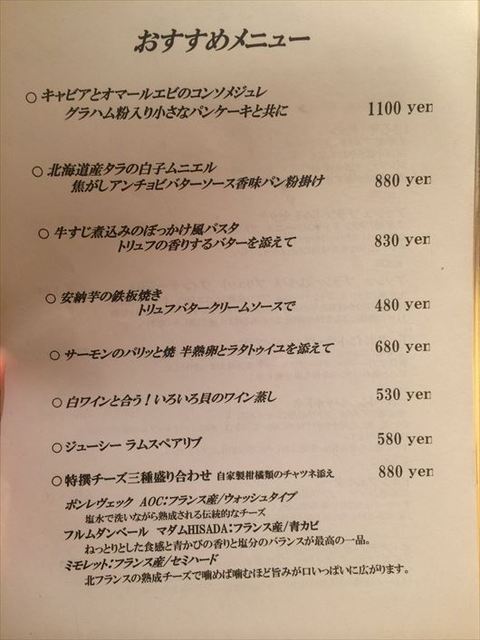 おすすめメニュー
○ キャビアとオマールエビのコンソメジュレ
グラハム粉入り小さなパンケーキと共に 1100 yen
○ 北海道産タラの白子ムニエル
焦がしアンチョビバターソース香味パン粉掛け 880 yen
○ 牛すじ煮込みのぼっかけ風パスタ
トリュフの香りするバターを添えて 830 yen
○ 安納芋の鉄板焼き
トリュフバタークリームソースで 480 yen
○ サーモンのパリッと焼 半熟卵とラタトゥイユを添えて 680 yen
○ 白ワインと合う！いろいろ貝のワイン蒸し 530 yen
○ ジューシー ラムスペアリブ 580 yen
○ 特撰チーズ三種盛り合わせ 自家製柑橘類のチャツネ添え 880 yen
ポンレヴェック AOC：フランス産/ウォッシュタイプ
塩水で洗いながら熟成される伝統的なチーズ
フルムダンベール マダムHISADA：フランス産/青カビ
ねっとりとした食感と青かびの香りと塩分のバランスが最高の一品。
ミモレット：フランス産/セミハード
北フランスの熟成チーズで噛めば噛むほど旨みが口いっぱいに広がります。